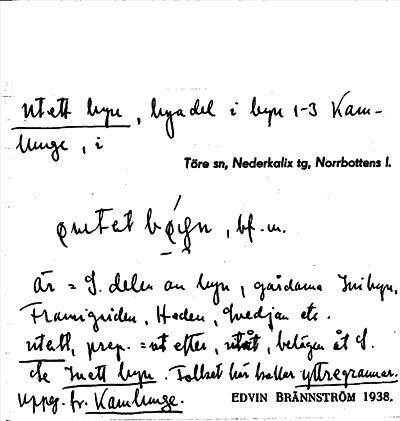 utett byn, byadel i byn 1-3 Kam-
lunge, i
Töre sn, Nederkalix tg, Norrbottens l.
bf. m.
är = S. delen av byn, gårdarna Inibyn,
Framigården, Heden, etc.
utett, prep. = ut efter, utåt, belägen åt S.
Se Inett byn. Folket här kallas yttregrannar.
Uppg. fr. Kamlunge.
EDVIN BRÄNNSTRÖM 1938.